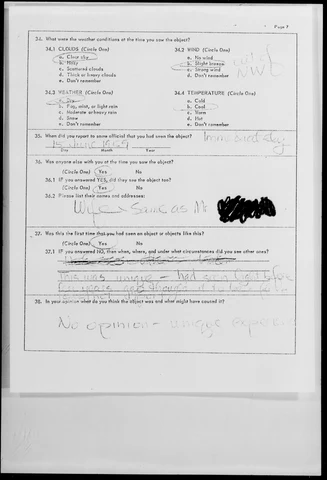 Page 9
34. What were the weather conditions at the time you saw the object?
34.1 CLOUDS (Circle One) 34.2 WIND (Circle One)
a. Clear sky a. No wind
b. Hazy b. Slight breeze
c. Scattered clouds c. Strong wind
d. Thick or heavy clouds d. Don't remember
e. Don't remember
NW
34.3 WEATHER (Circle One) 34.4 TEMPERATURE (Circle One)
a. Dry a. Cold
b. Fog, mist, or light rain b. Cool
c. Moderate or heavy rain c. Warm
d. Snow d. Hot
e. Don't remember e. Don't remember
35. When did you report to some official that you had seen the object? Immediately
15 June 1959
Day Month Year
36. Was anyone else with you at the time you saw the object?
(Circle One) Yes No
36.1 IF you answered YES, did they see the object too?
(Circle One) Yes No
36.2 Please list their names and addresses:
Wife - Same as
37. Was this the first time that you had seen an object or objects like this?
(Circle One) Yes No
37.1 IF you answered NO, then when, where, and under what circumstances did you see other ones?
This was unique - had seen light before
38. In your opinion what do you think the object was and what might have caused it?
No opinion - unique experience